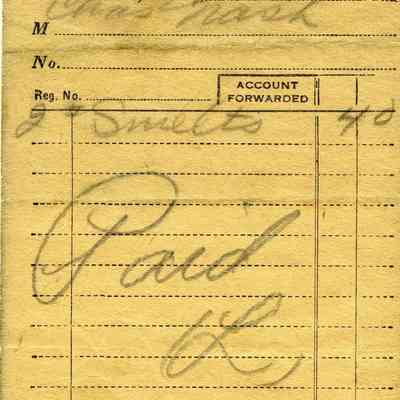 Chas Nash
M
No.
Reg. No. ACCOUNT FORWARDED
2# Smelts 40
Paid
L